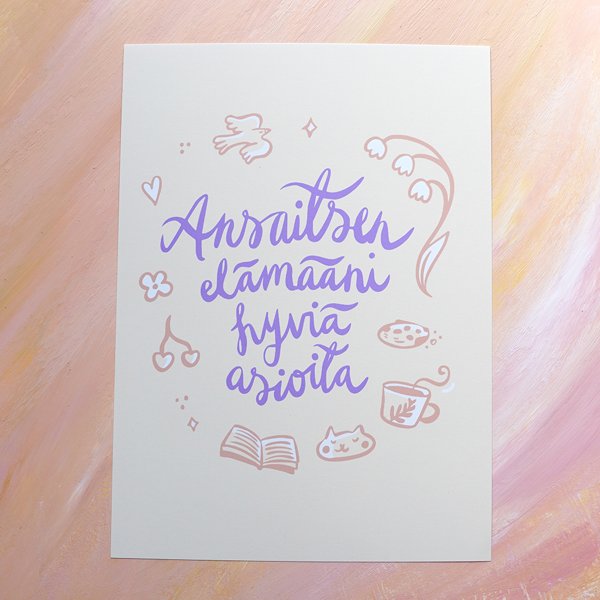 Ansaitsen
elämääni
hyviä
asioita